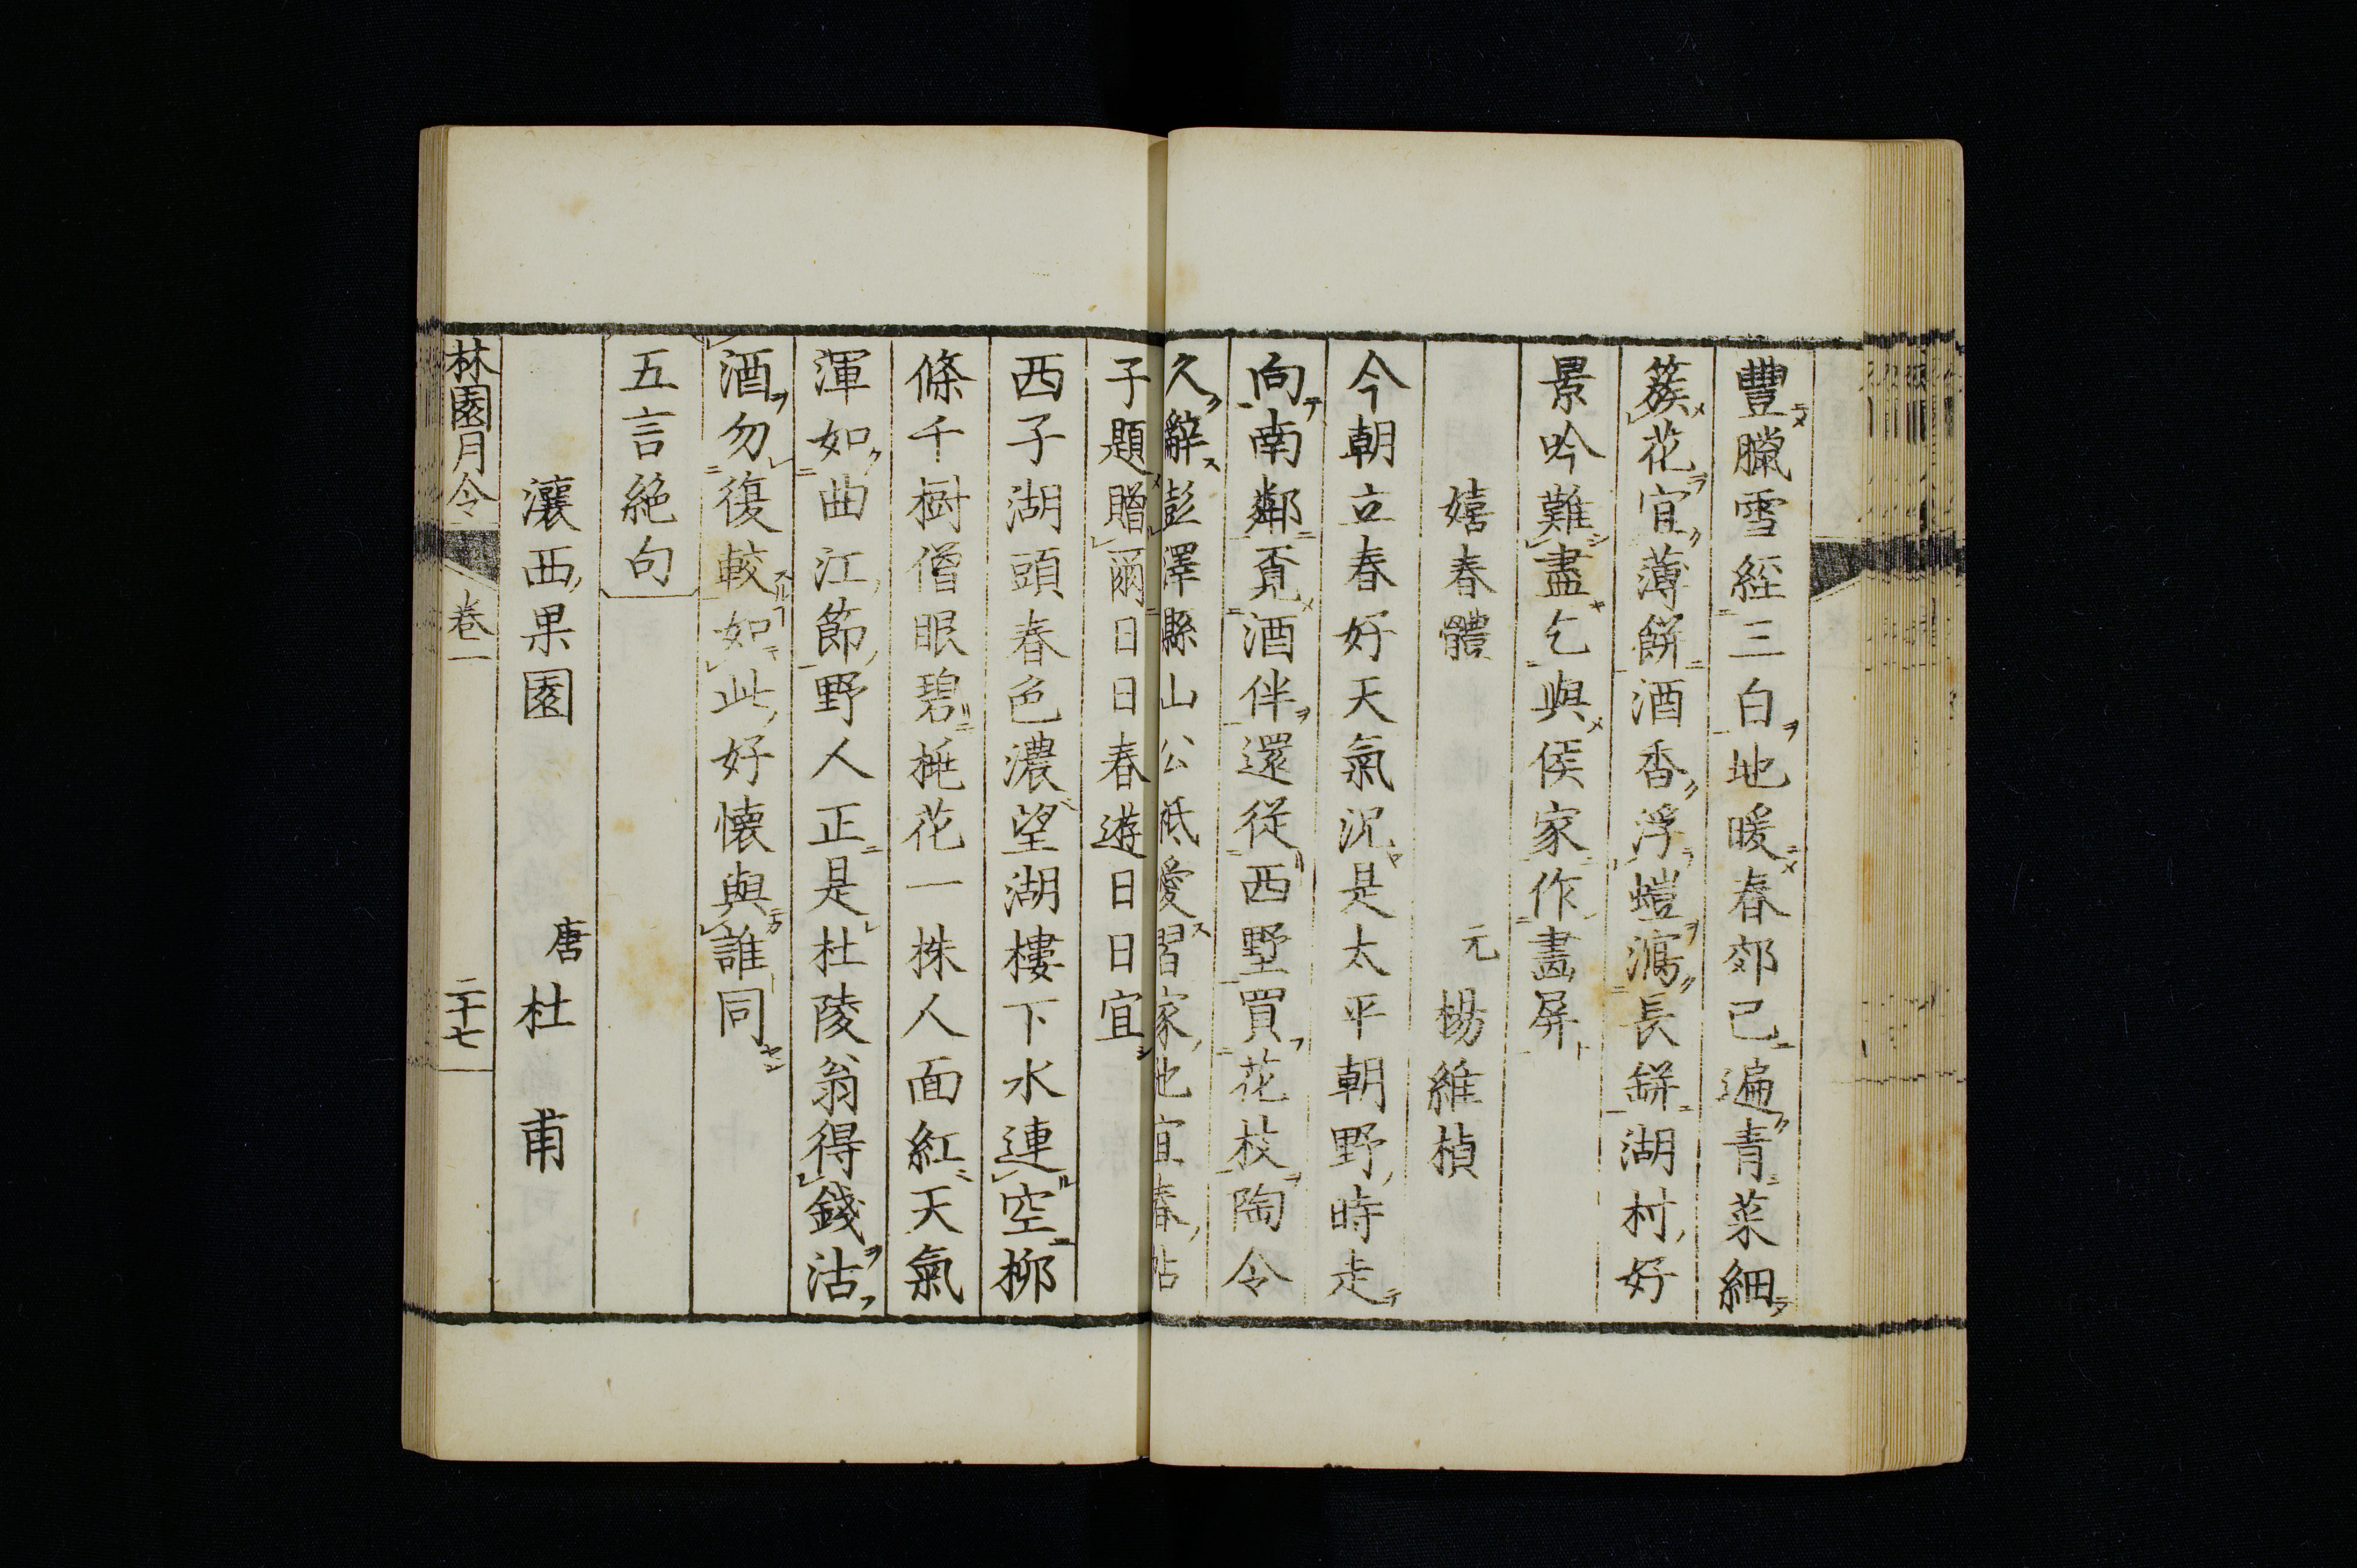 豐臘雪經三白地暖春郊已遍青菜細
簇花宜薄餅酒香浮螘瀉長缾湖村好
景吟難盡乞與侯家作畫屏
嬉春體 元 楊維楨
今朝立春好天氣況是太平朝野時走
向南鄰覓酒伴還從西墅買花枝陶令
久辭彭澤縣山公祇愛習家池宜春帖
子題贈爾日日春遊日日宜
西子湖頭春色濃望湖樓下水連空柳
條千樹僧眼碧桃花一株人面紅天氣
渾如曲江節野人正是杜陵翁得錢沽
酒勿復較如此好懷與誰同
五言絕句
瀼西果園 唐 杜甫
林園月令 卷一 二十七